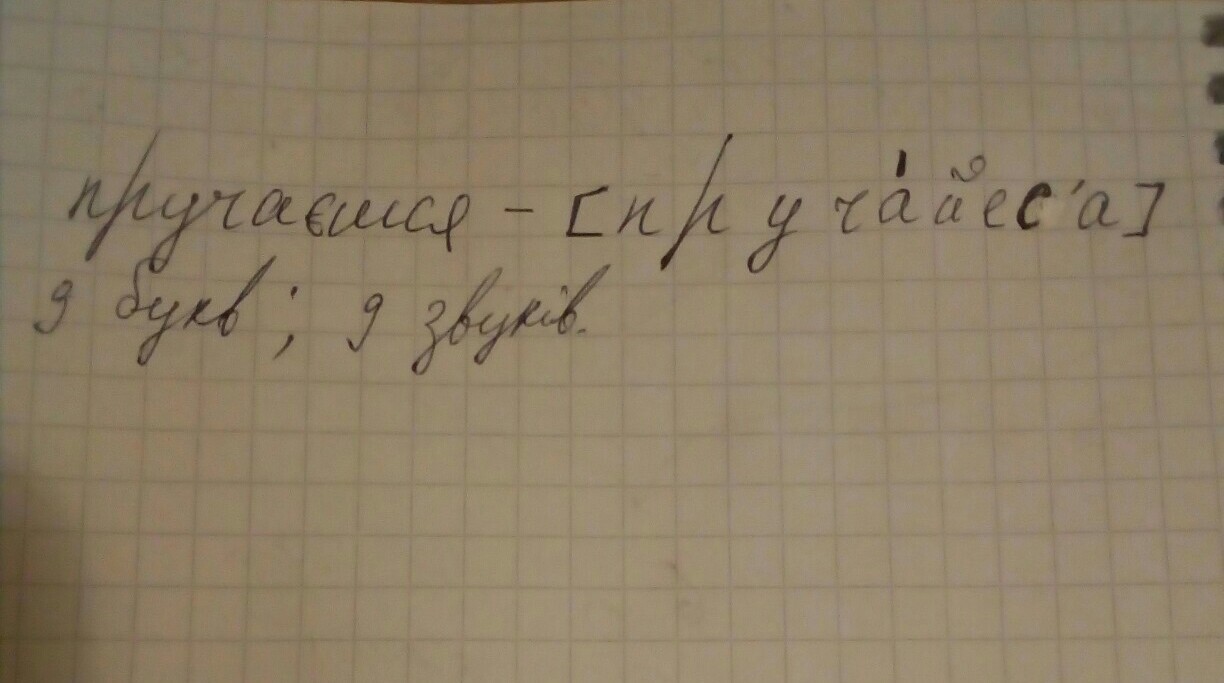 пручаєшся – [пруча́йес'а]
9 букв; 9 звуків.